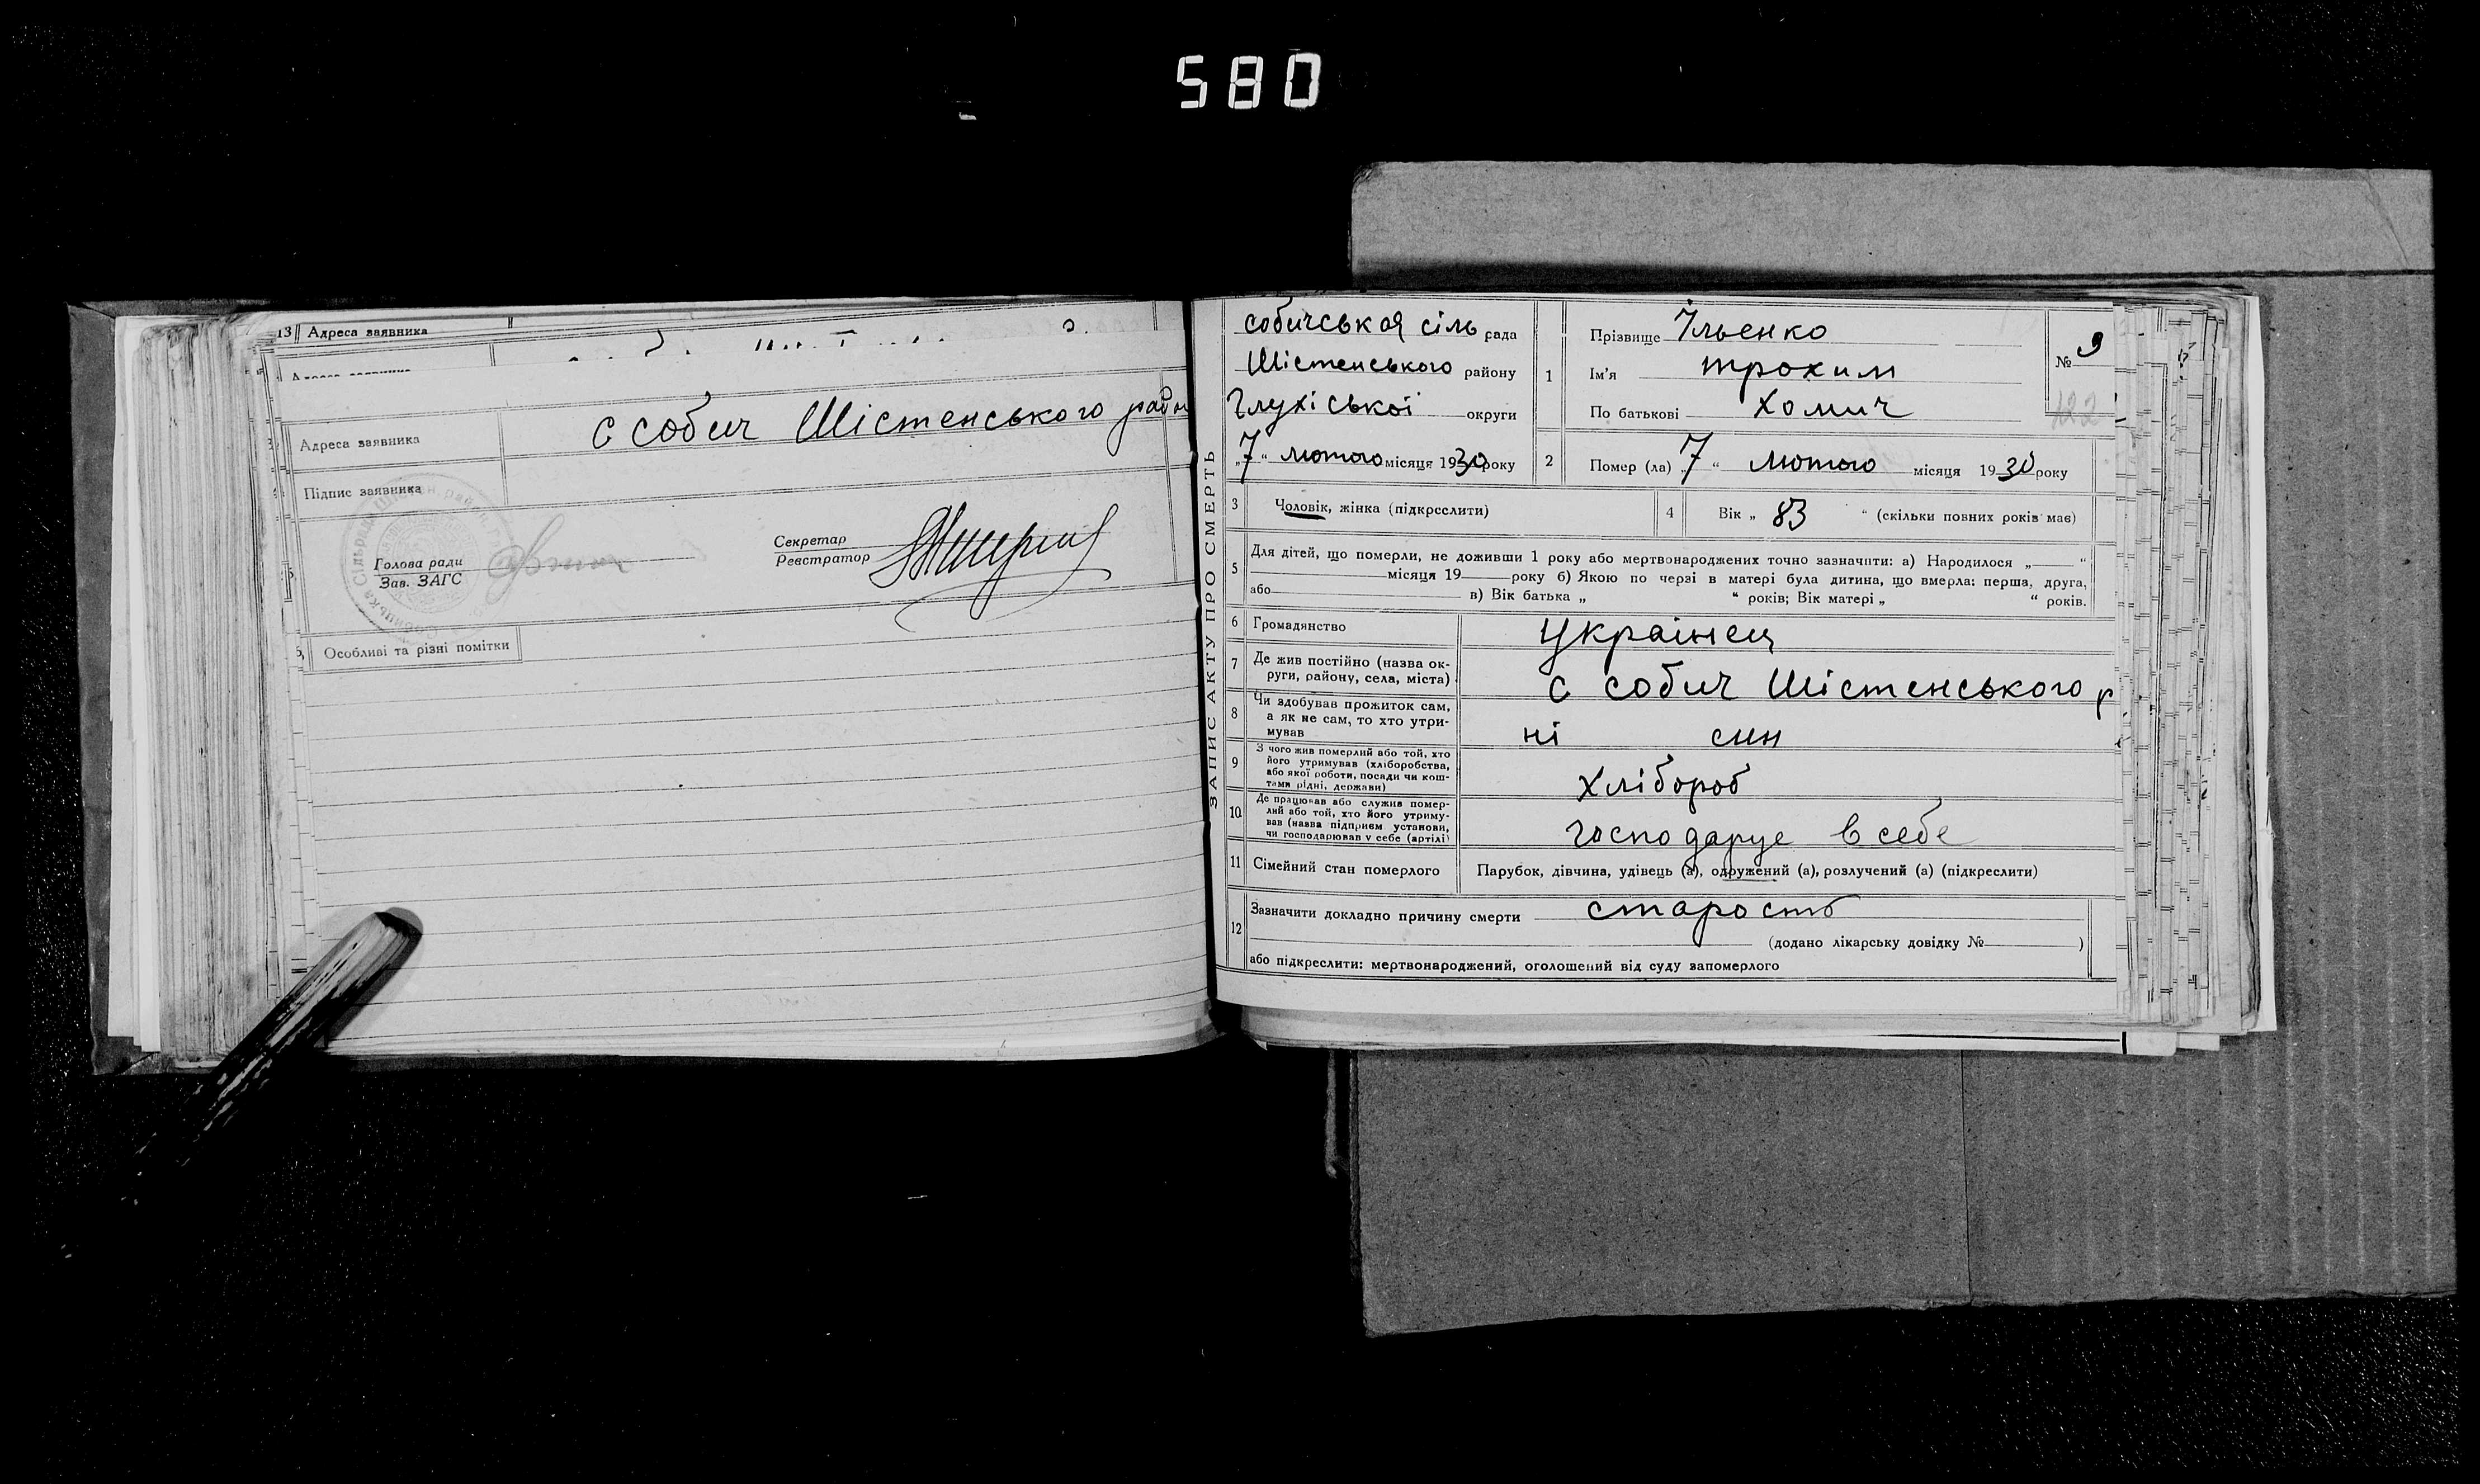 580
13 Адреса заявника
Адреса заявника с собич Шістенського район
Підпис заявника
Голова ради
Зав. ЗАГС
Секретар
Реєстратор
Особливі та різні помітки
ЗАПИС АКТУ ПРО СМЕРТЬ
собичськая сіль рада
Шістенського району
Глухіської округи
„7“ лютого місяця 1930 року
1 Прізвище Ільенко
Ім'я трохим
По батькові хомич
№ 9
122
2 Помер (ла) „7“ лютого місяця 1930 року
3 Чоловік, жінка (підкреслити)
4 Вік „ 83 “ (скільки повних років має)
5 Для дітей, що померли, не доживши 1 року або мертвонароджених точно зазначити: а) Народилося „ “
місяця 19 року б) Якою по черзі в матері була дитина, що вмерла: перша, друга,
або в) Вік батька „ “ років; Вік матері „ “ років.
6 Громадянство українец
7 Де жив постійно (назва ок-
руги, району, села, міста) с собич Шістенського р
8 Чи здобував прожиток сам,
а як не сам, то хто утри-
мував ні син
9 З чого жив померлий або той, хто
його утримував (хліборобства,
або якої роботи, посади чи кош-
тами рідні, держави) хлібороб
10 Де працював або служив помер-
лий або той, хто його утриму-
вав (назва підприєм установи,
чи господарював у себе (артілі) господарує в себе
11 Сімейний стан померлого Парубок, дівчина, удівець (а), одружений (а), розлучений (а) (підкреслити)
12 Зазначити докладно причину смерти старость
(додано лікарську довідку № )
або підкреслити: мертвонароджений, оголошений від суду запомерлого